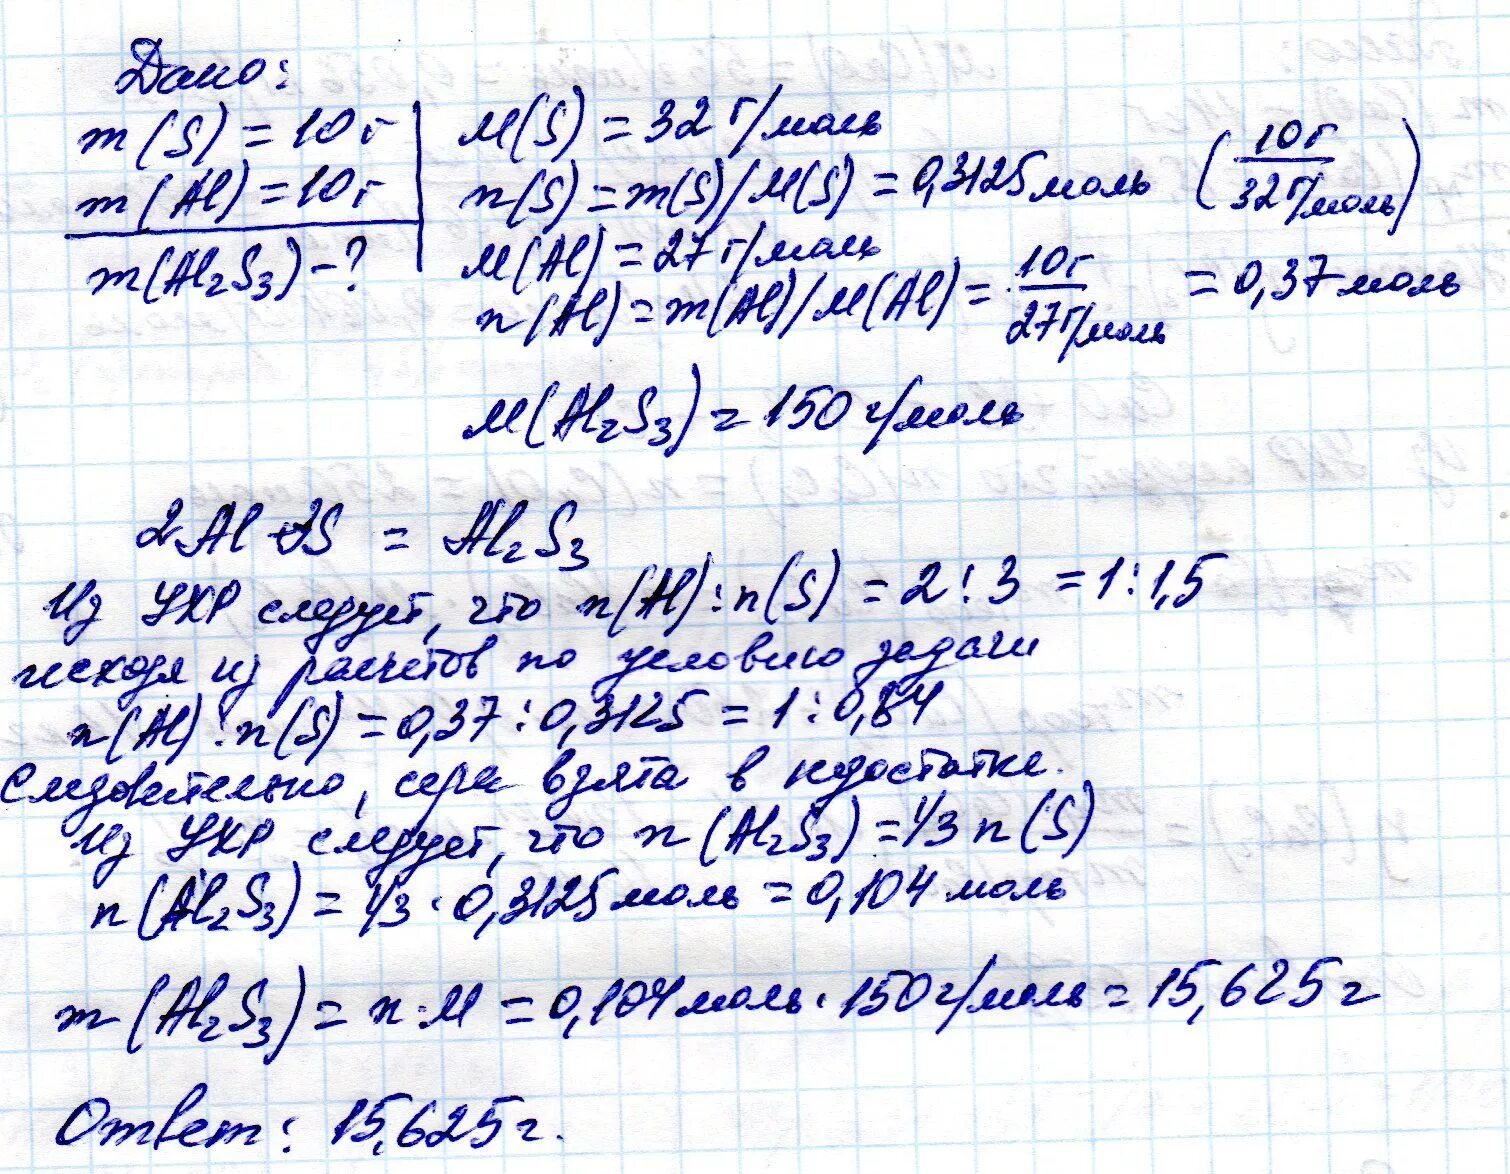 Дано:
m(S) = 10 г
m(Al) = 10 г
m(Al₂S₃) - ?
M(S) = 32 г/моль
n(S) = m(S)/M(S) = 0,3125 моль (10 г / 32 г/моль)
M(Al) = 27 г/моль
n(Al) = m(Al)/M(Al) = 10 г / 27 г/моль = 0,37 моль
M(Al₂S₃) = 150 г/моль
2Al + 3S = Al₂S₃
Из УХР следует, что n(Al) : n(S) = 2 : 3 = 1 : 1,5
исходя из расчетов по условию задачи
n(Al) : n(S) = 0,37 : 0,3125 = 1 : 0,84
Следовательно, сера взята в недостатке.
Из УХР следует, что n(Al₂S₃) = 1/3 n(S)
n(Al₂S₃) = 1/3 · 0,3125 моль = 0,104 моль
m(Al₂S₃) = n · M = 0,104 моль · 150 г/моль = 15,625 г
Ответ: 15,625 г.